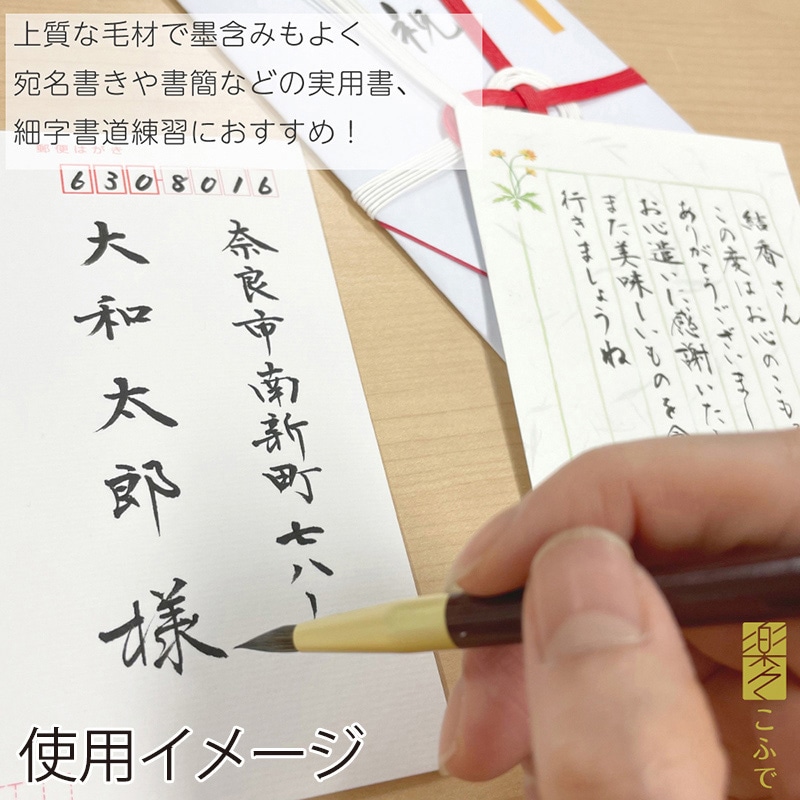 上質な毛材で墨含みもよく
宛名書きや書簡などの実用書、
細字書道練習におすすめ！
祝
郵便はがき
6308016
奈良市南新町七八一
大和太郎様
結香さん
この度はお心のこも
ありがとうございまし
お心遣いに感謝いた
また美味しいものを食
行きましょうね
楽々
こふで
使用イメージ